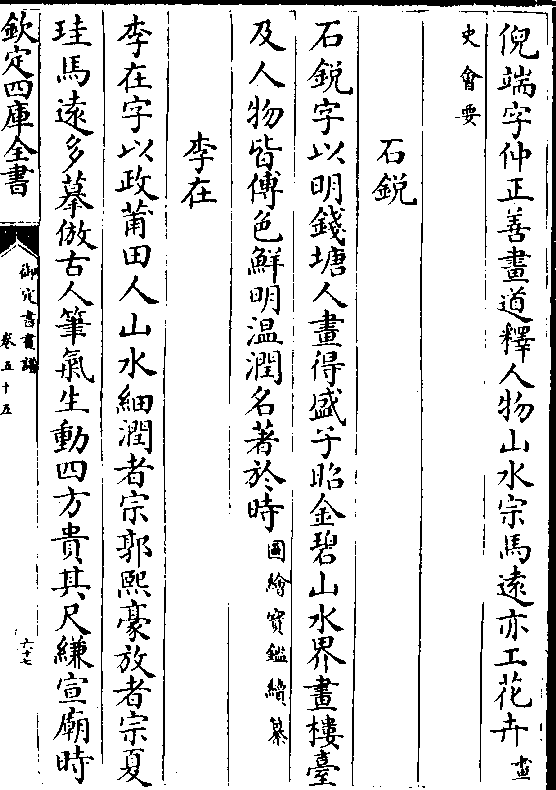 倪端字仲正善畫道釋人物山水宗馬遠亦工花卉畫
史會要
石鋭
石鋭字以明錢塘人畫得盛子昭金碧山水界畫樓臺
及人物皆傅色鮮明温潤名著於時圖繪寳鑑續纂
李在
李在字以政莆田人山水細潤者宗郭熙豪放者宗夏
珪馬遠多摹倣古人筆氣生動四方貴其尺縑宣廟時
欽定四庫全書
御定書畫譜
卷五十五
六十七